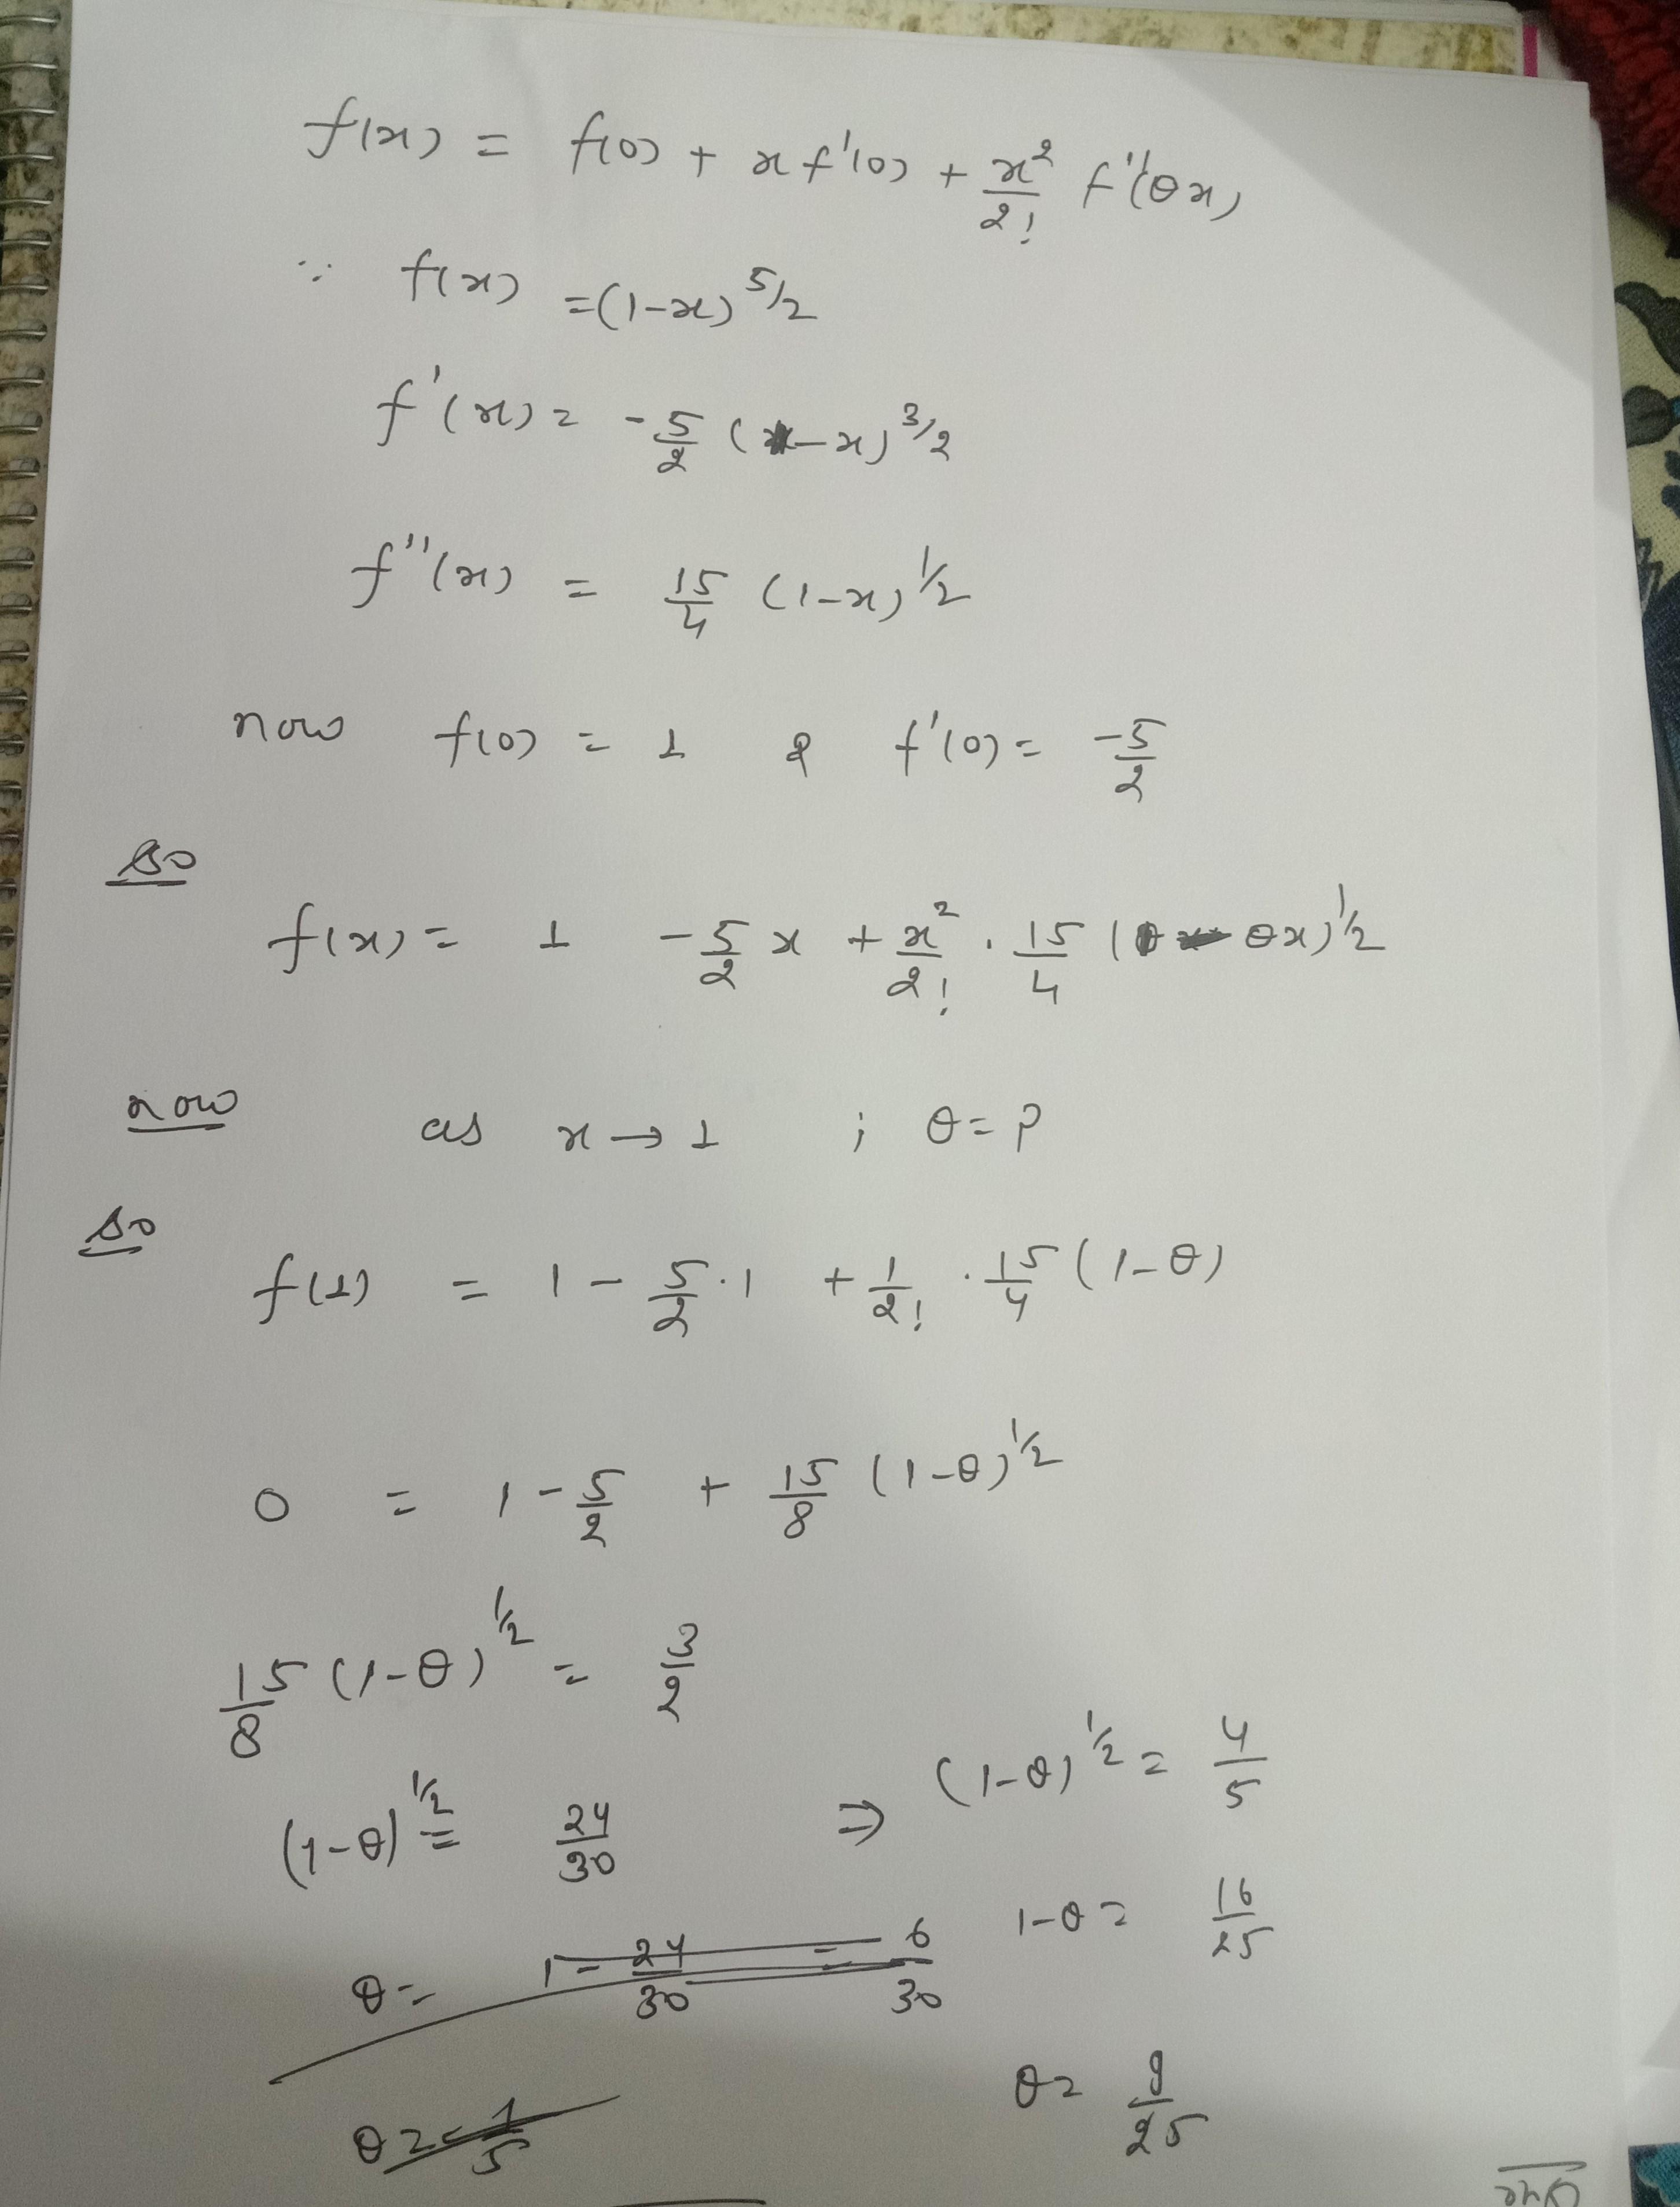 f(x) = f(0) + x f'(0) + x²/2! f''(θx)
∵ f(x) = (1-x)^5/2
f'(x) = -5/2 (1-x)^3/2
f''(x) = 15/4 (1-x)^1/2
now f(0) = 1 & f'(0) = -5/2
so
f(x) = 1 -5/2 x + x²/2! · 15/4 ( θx)^1/2
now as x → 1 ; θ = ?
so
f(1) = 1 - 5/2 · 1 + 1/2! · 15/4 (1-θ)
0 = 1 - 5/2 + 15/8 (1-θ)^1/2
15/8 (1-θ)^1/2 = 3/2
(1-θ)^1/2 = 24/30 ⇒ (1-θ)^1/2 = 4/5
θ = 1 - 24/30 = 6/30
1-θ = 16/25
θ = 1/5
θ = 9/25